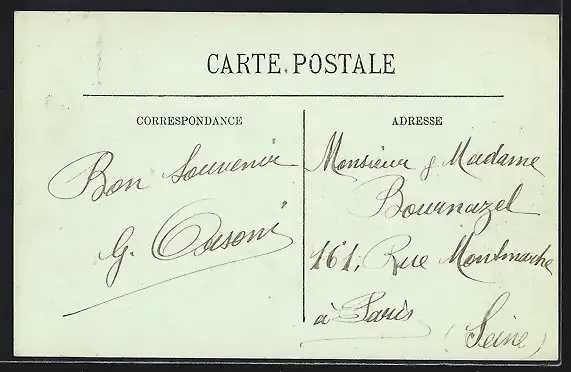 CARTE POSTALE
CORRESPONDANCE
ADRESSE
Bon Souvenir
G. Casoni
Monsieur & Madame
Bournazel
161, Rue Montmartre
à Paris
(Seine)